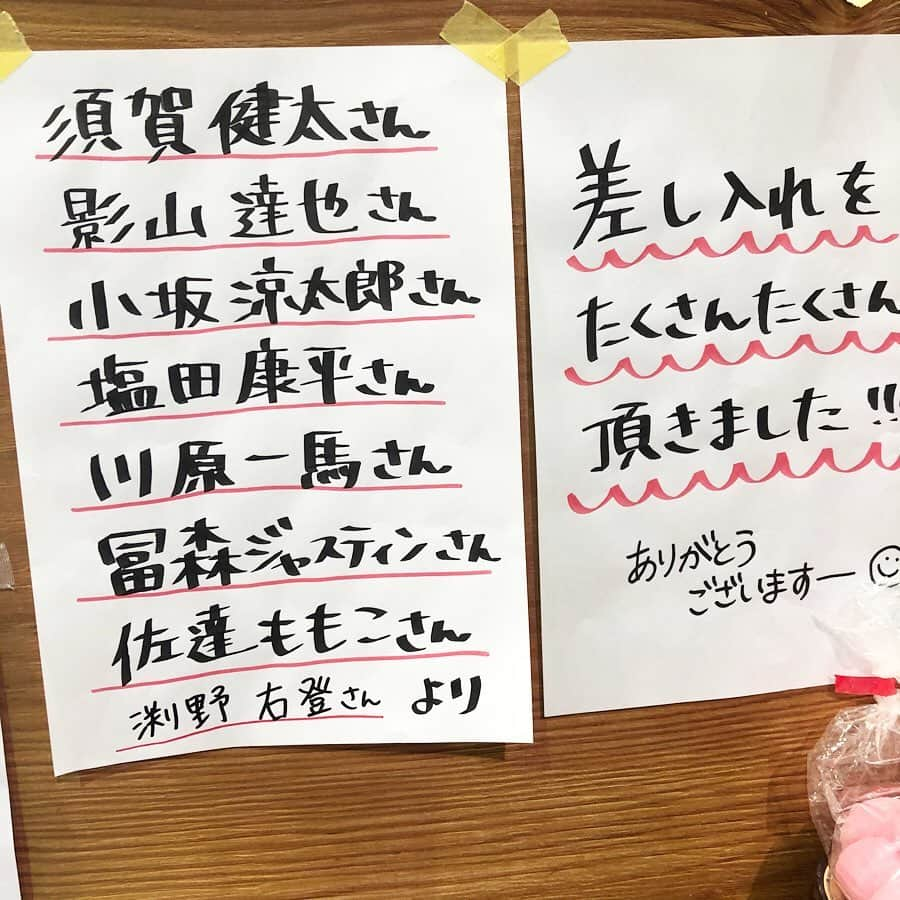 須賀健太さん
影山達也さん
小坂涼太郎さん
塩田康平さん
川原一馬さん
冨森ジャスティンさん
佐達ももこさん
渕野右登さん より
差し入れを
たくさんたくさん
頂きました!!
ありがとう
ございますー